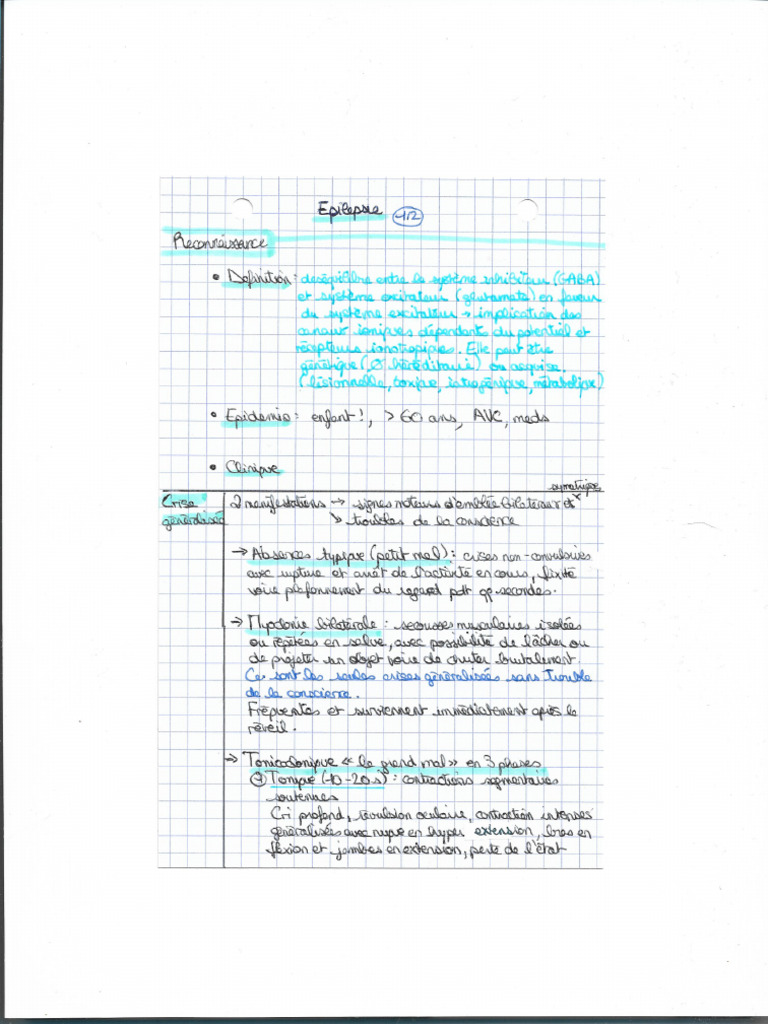 Epilepsie 1/2
Reconnaissance
• Definition : deséqilibre entre le système inhibiteur (GABA)
et système excitateur (glutamate) en faveur
du système excitateur → implication des
canaux ioniques dépendants du potentiel et
récepteurs ionotropiques. Elle peut être
génétique (, Ø héréditaire) ou acquise.
(lésionnelle, toxique, iatrogénique, métabolique)
• Epidemio : enfant !, > 60 ans, AVC, meds
• Clinique
Crise généralisée
2 manifestations → signes moteurs d'emblée bilatéraux et symetrique
↳ troubles de la conscience
→ Absences typique (petit mal) : crises non-convulsives
avec rupture et arrêt de l'activité en cours, fixité
voire plafonnement du regard pdt qq secondes.
→ Myoclonie bilatérale : secousses musculaires isolées
ou répétées en salve, avec possibilité de lâcher ou
de projeter un objet voire de chuter brutalement.
Ce sont les seules crises généralisées sans trouble
de la conscience.
Fréquentes et surviennent immédiatement après le
réveil.
→ Tonicoclonique « le grand mal » en 3 phases
Tonique (10-20s) : contractions segmentaires
soutenues
Cri profond, révulsion oculaire, contraction intenses
généralisées avec nuque en hyper extension, bras en
flexion et jambes en extension, perte de l'état